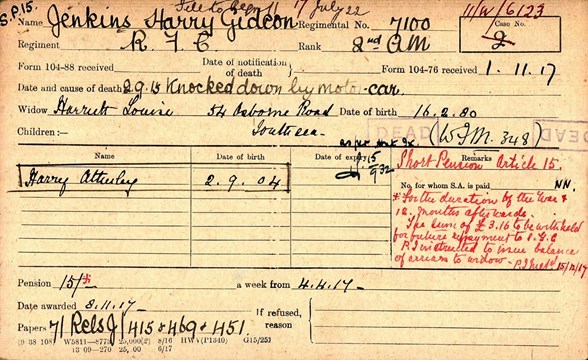 S.P.15. File to Regn 11 17 July 22 11/W/6123
Name Jenkins Harry Gideon Regimental No. 7100 Case No.
Regiment R. F. C Rank 2nd AM
Form 104-88 received Date of notification of death Form 104-76 received 1.11.17
Date and cause of death 29.15 Knocked down by motor-car.
Widow Harriett Louise 54 Osborne Road Date of birth 16.2.80
Children:— Southsea DEAD (W.F.M. 348) DEAD
Name Date of birth Date of expiry Remarks
Short Pension Article 15.
Harry Atterley 2.9.04 No. for whom S.A. is paid NN.
* For the duration of the War &
12 months afterwards.
The sum of £3.16 to be withheld
for future repayment to
P.I instructed to issue balance
of arrears to widow - 15/11/17
Pension 15/- * a week from 4.4.17-
Date awarded 8.11.17- If refused, reason
Papers 71 Rels J/415 & 469 & 451.
(9 38 108) W5811—8773 25,000(2) 8/16 HWV(P1340) G15/25)
13 09—270 25, 00 6/17